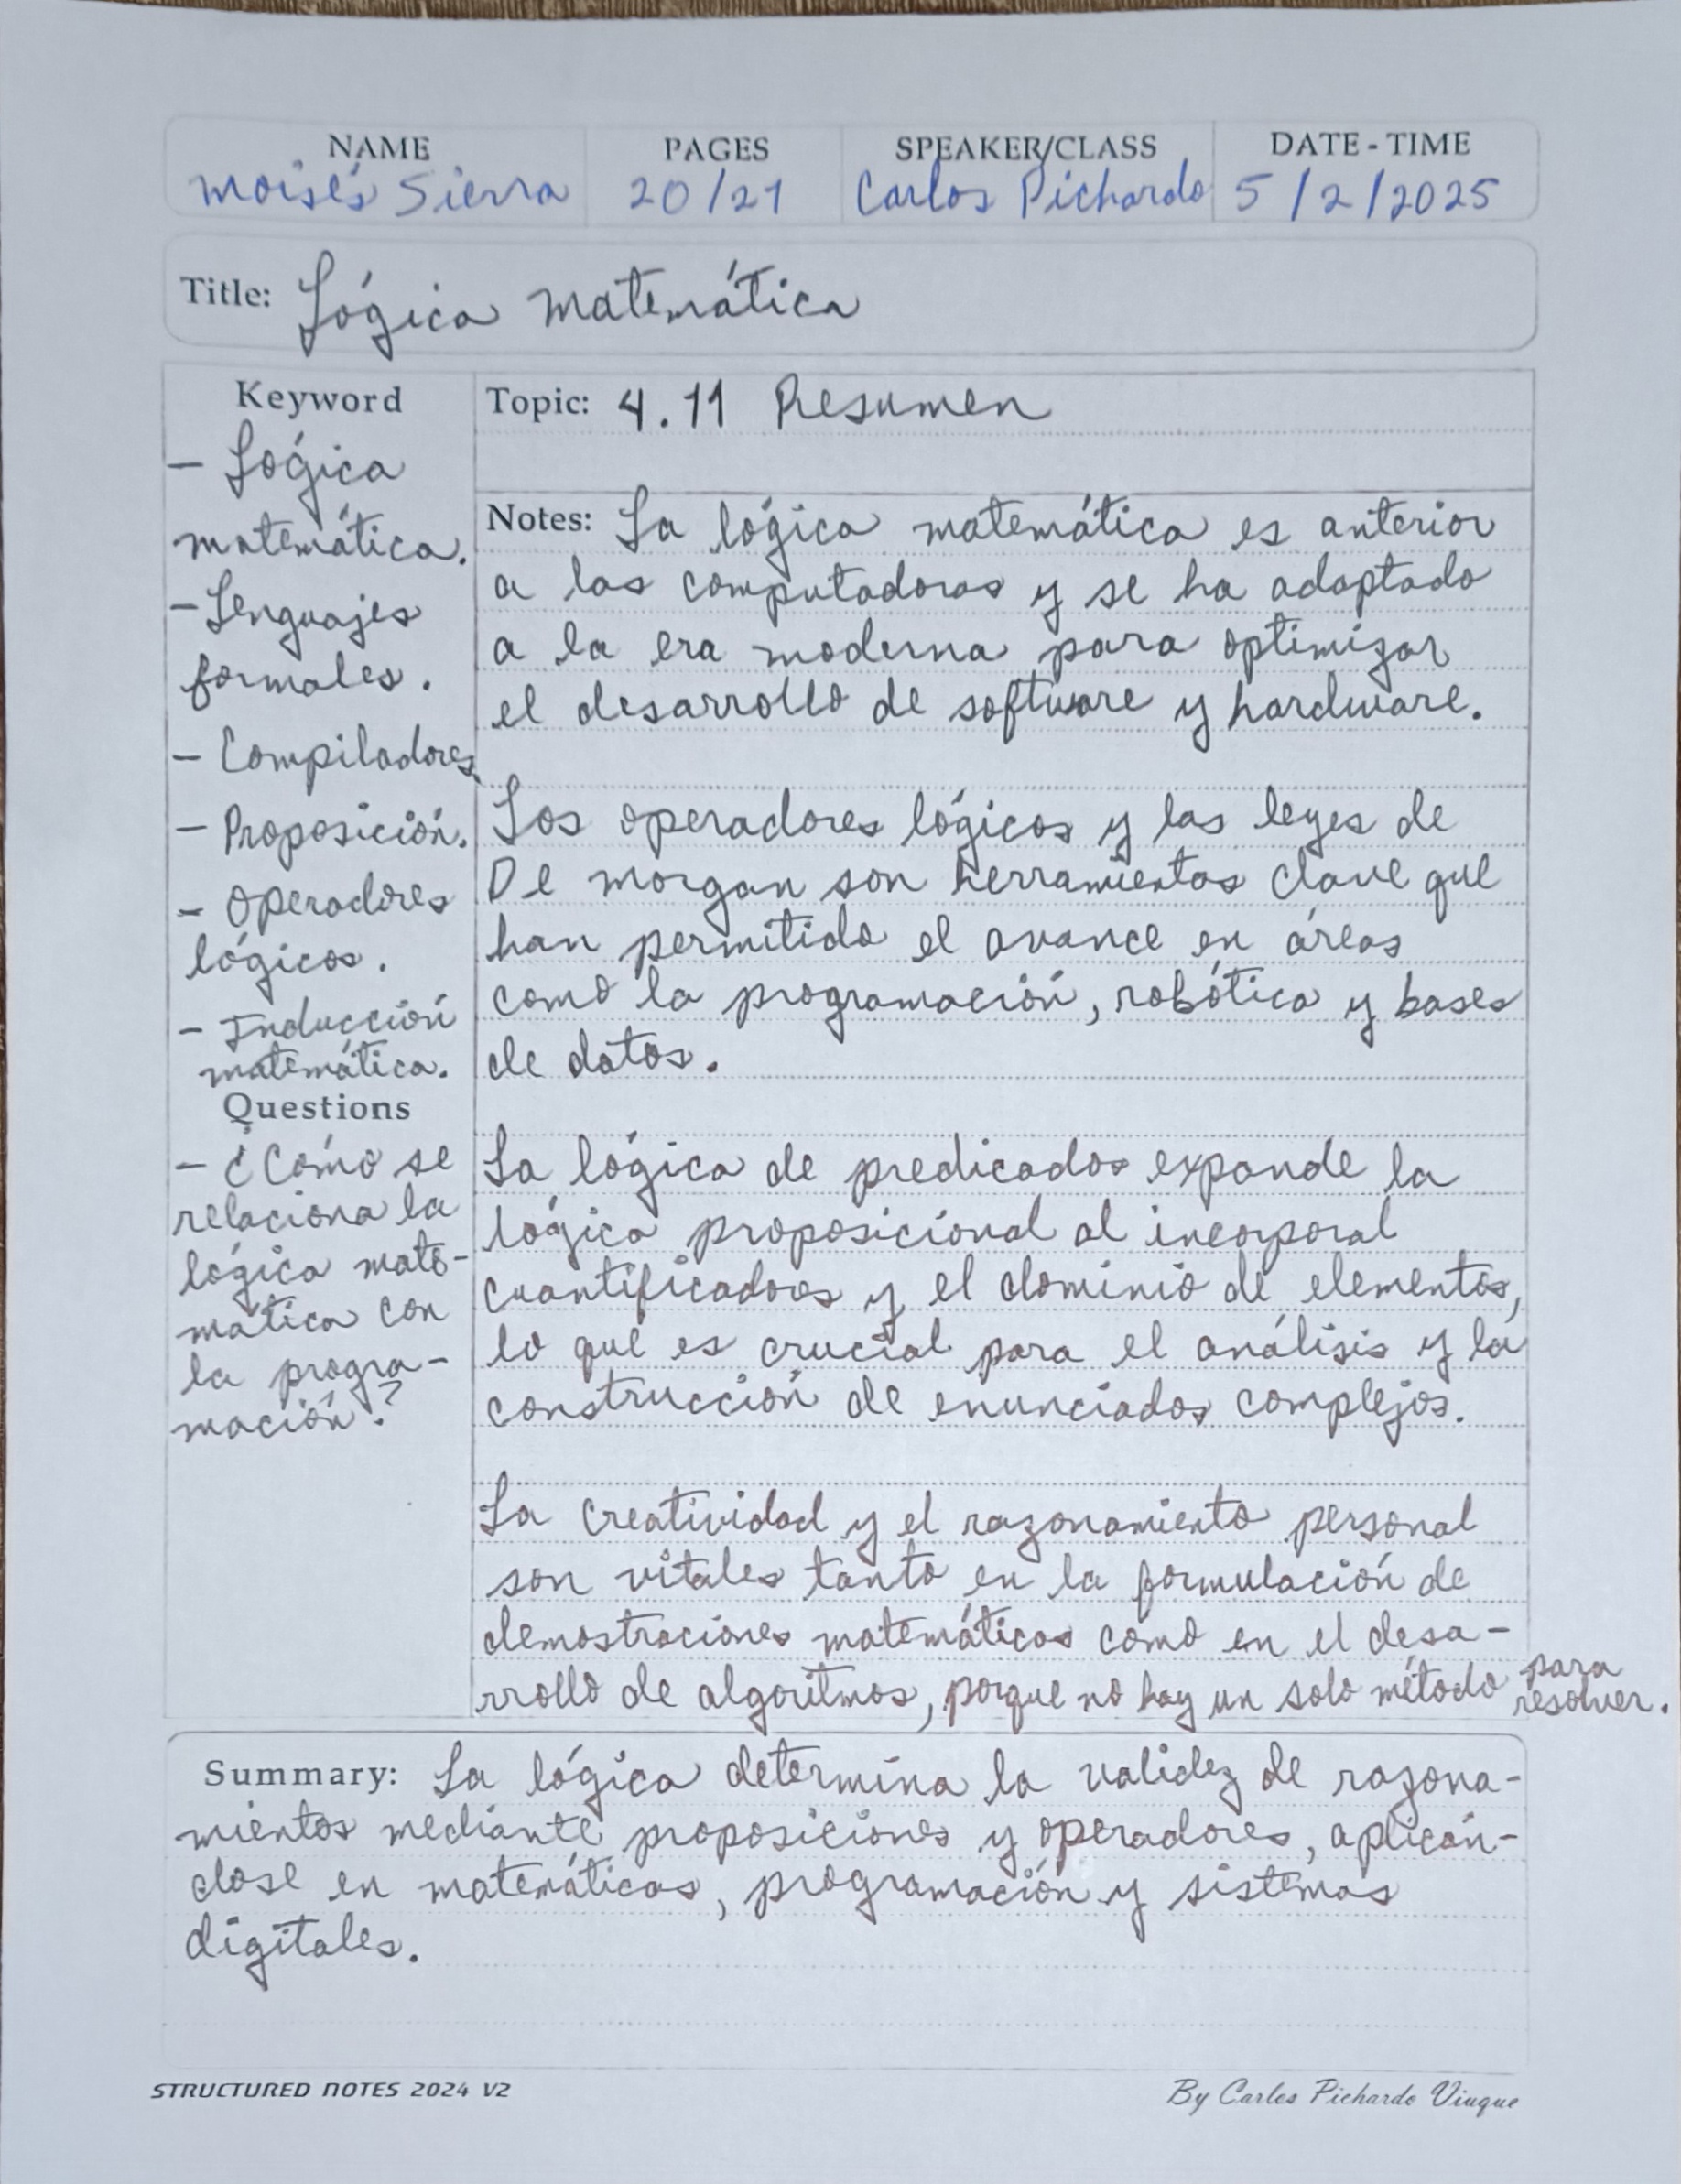 NAME PAGES SPEAKER/CLASS DATE-TIME
Moisés Sierra 20/21 Carlos Pichardo 5/2/2025
Title: Lógica matemática
Keyword
- Lógica
matemática.
- Lenguajes
formales.
- Compiladores.
- Proposición.
- Operadores
lógicos.
- Inducción
matemática.
Questions
- ¿Cómo se
relaciona la
lógica mate-
mática con
la progra-
mación?
Topic: 4.11 Resumen
Notes: La lógica matemática es anterior
a las computadoras y se ha adaptado
a la era moderna para optimizar
el desarrollo de software y hardware.
Los operadores lógicos y las leyes de
De morgan son herramientas clave que
han permitido el avance en áreas
como la programación, robótica y bases
de datos.
La lógica de predicados expande la
lógica proposicional al incorporal
cuantificadores y el dominio de elementos,
lo que es crucial para el análisis y la
construcción de enunciados complejos.
La creatividad y el razonamiento personal
son vitales tanto en la formulación de
demostraciones matemáticas como en el desa-
rrollo de algoritmos, porque no hay un solo método para
resolver.
Summary: La lógica determina la validez de razona-
mientos mediante proposiciones y operadores, aplicán-
dose en matemáticas, programación y sistemas
digitales.
STRUCTURED NOTES 2024 V2
By Carlos Pichardo Viuque